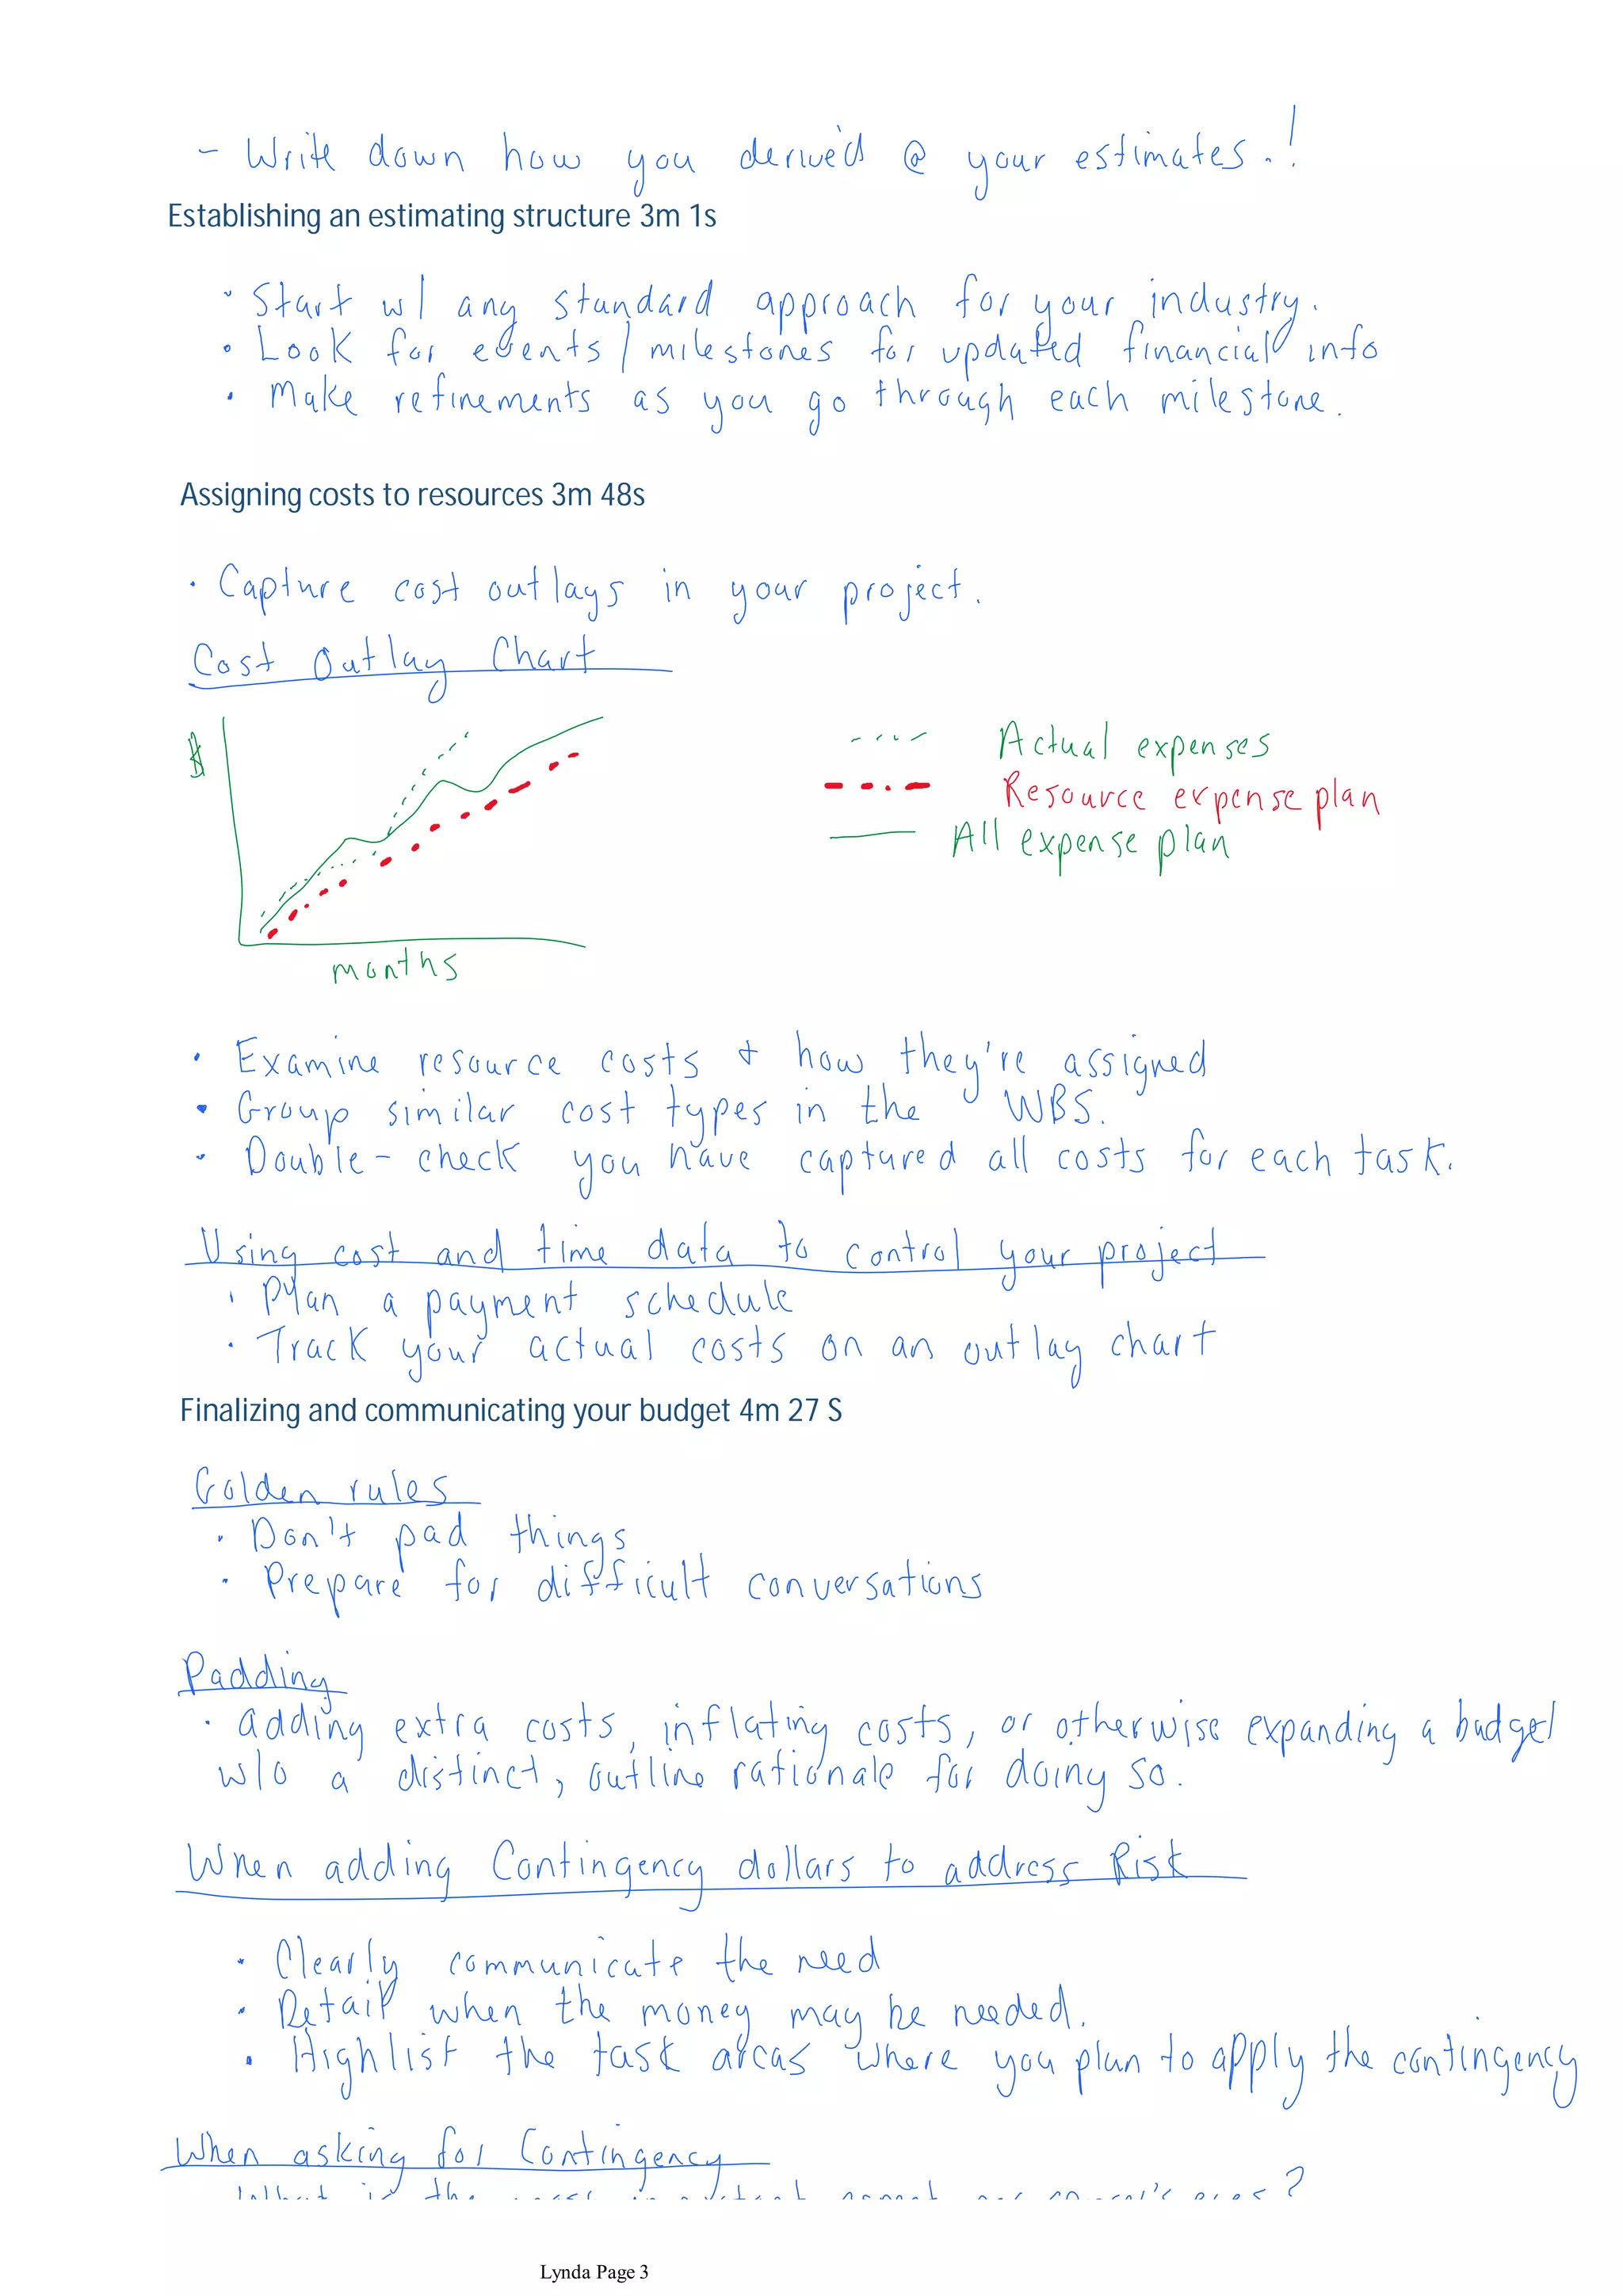 - Write down how you derived @ your estimates.!
Establishing an estimating structure 3m 1s
• Start w/ any standard approach for your industry.
• Look for events / milestones for updated financial info
• Make refinements as you go through each milestone.
Assigning costs to resources 3m 48s
• Capture cost outlays in your project.
Cost Outlay Chart
$
Actual expenses
Resource expense plan
All expense plan
months
• Examine resource costs & how they're assigned
• Group similar cost types in the WBS.
• Double-check you have captured all costs for each task.
Using cost and time data to control your project
• Plan a payment schedule
• Track your actual costs on an outlay chart
Finalizing and communicating your budget 4m 27 S
Golden rules
• Don't pad things
• Prepare for difficult conversations
Padding
• adding extra costs, inflating costs, or otherwise expanding a budget
w/o a distinct, outline rationale for doing so.
When adding Contingency dollars to address Risk
• Clearly communicate the need
• Detail when the money may be needed.
• Highlist the task areas where you plan to apply the contingency
When asking for Contingency
What is the
Lynda Page 3